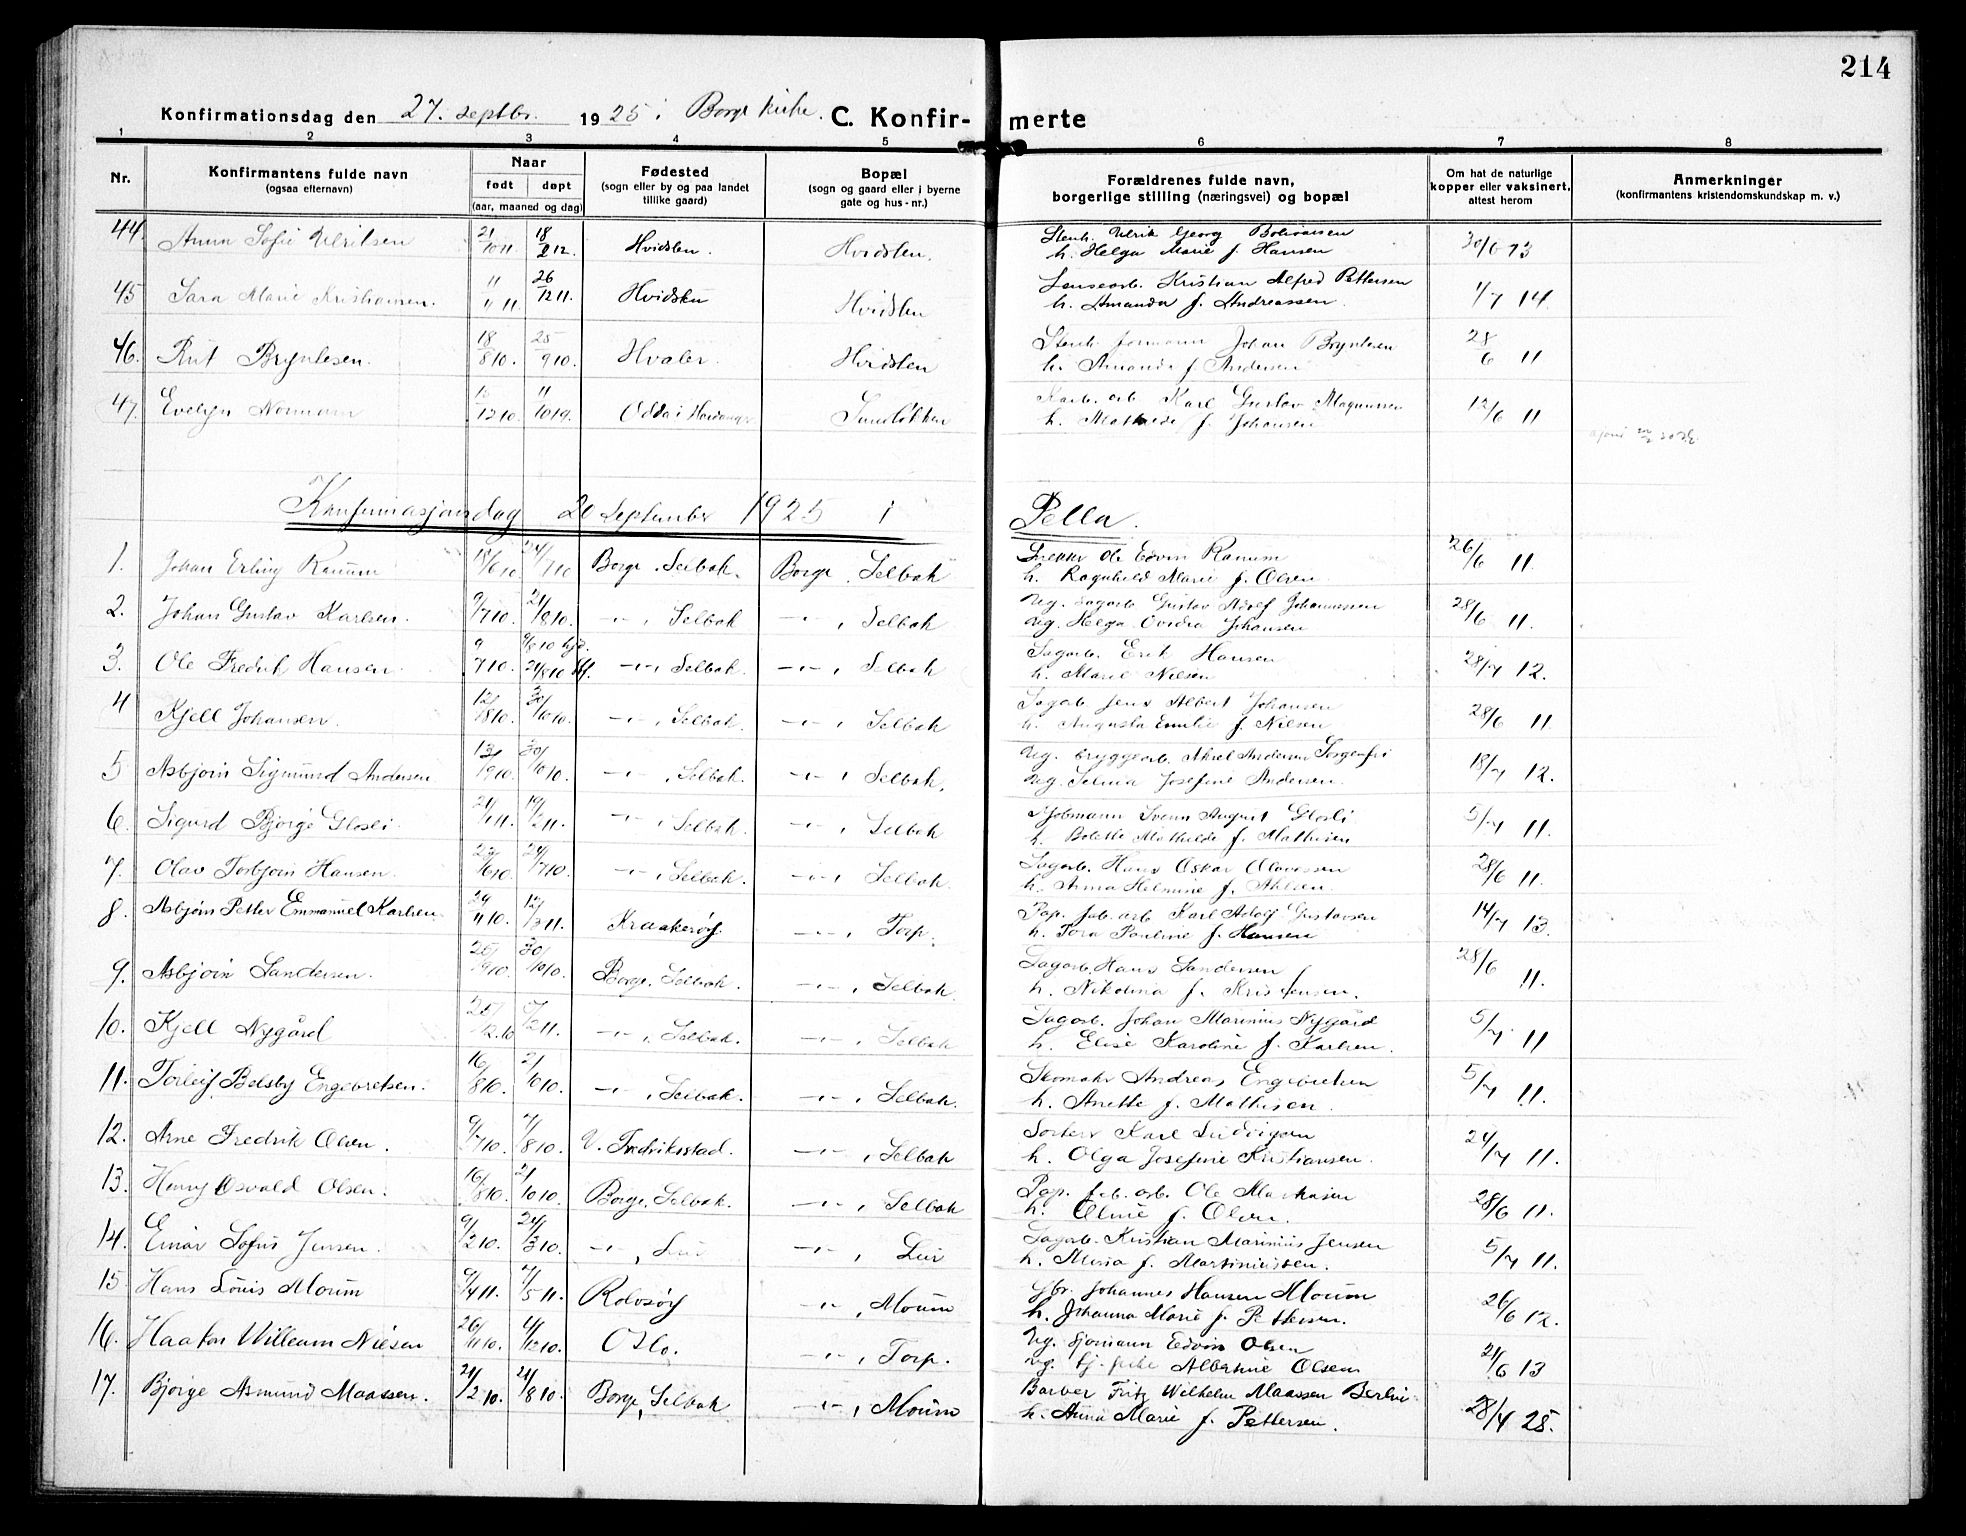 214
Konfirmationsdag den 27. septbr. 1925 i Borge kirke. C. Konfir- merte
1 2 3 4 5 6 7 8
Nr. Konfirmantens fulde navn (ogsaa efternavn) Naar født døpt (aar, maaned og dag) Fødested (sogn eller by og paa landet tillike gaard) Bopæl (sogn og gaard eller i byerne gate og hus-nr.) Forældrenes fulde navn, borgerlige stilling (næringsvei) og bopæl Om hat de naturlige kopper eller vaksinert, attest herom Anmerkninger (konfirmantens kristendomskundskap m. v.)
44. Anna Sofie Ulriksen 21/10 11. 18/2 12. Hvidsten. Hvidsten. Stenh. Ulrik Georg
h. Helga Marie f. Hansen 30/6 13
45 Sara Marie Kristiansen. 11/11 11. 26/12 11. Hvidsten Hvidsten Kristian Alfred Pettersen
h. Amanda f. Andreassen. 4/7 14
46. Rut Bryntesen. 18/8 10. 25/9 10. Hvaler. Hvidsten Stenh. formann Johan Bryntesen
h. Amanda f. Andersen 28/6 11
47. Evelyn Normann 12 10. 11/10 19. Odda i Hardanger Sundløkken Karb. arb. Karl Gustav Magnussen
h. Mathilde f. Johansen 12/6 11
Konfirmasjonsdag 20 September 1925 i Pella.
1. Johan Erling Ranum 18/6 10 24/7 10 Borge, Selbak. Borge, Selbak Ole Edvin Ranum
h. Ragnhild Marie f. Olsen 26/6 11.
2. Johan Gustav Karlsen. 9/7 10. 21/8 10. -"-, Selbak -"-, Selbak Ug. Sagarb. Gustav Adolf Johannessen
Ug. Helga Ovidia Johansen 28/6 11.
3. Ole Fredrik Hansen. 9/7 10. 9/8 10 hjd. 21/8 10 -"-, Selbak. -"-, Selbak Sagarb. Erik Hansen
h. Marie Nilsen 28/7 12.
4 Kjell Johansen. 12/8 10. 30/10 10. -"-, Selbak. -"-, Selbak Sagarb. Jens Albert Johansen
h. Augusta Emilie f. Nilsen 28/6 11.
5 Asbjørn Sigmund Andersen 13/9 10. 30/10 10. -"-, Selbak. -"-, Selbak. Ug. bryggearb. Aksel Andersen Sorgenfri
Ug. Selma Josefine Andersen. 18/7 12.
6. Sigurd Bjørge Glosli. 21/1 11. 19/2 11. -"-, Selbak. -"-, Selbak Sjømann Svenn August Glosli
h. Bolette Mathilde f. Mathisen 5/7 11.
7. Olav Torbjørn Hansen. 23/6 10. 24/7 10. -"-, Selbak. -"-, Selbak. Sagarb. Hans Oskar Olavessen
h. Anna Helmine f. 28/6 11.
8. Asbjørn Petter Emmanuel Karlsen. 29/11 10. 12/3 11. Kraakerøy. -"-, Torp. Pap. fab. arb. Karl Adolf Gustavsen
h. Tora Pauline f. Hansen 14/7 13.
9. Asbjørn Sandersen. 25/9 10. 30/10 10. Borge, Selbak. -"-, Selbak. Sagarb. Hans Sandersen
h. Nikolina f. Kristensen. 28/6 11.
10. Kjell Nygård 25/12 10 5/2 11. -"-, Selbak. -"-, Selbak Sagarb. Johan Marinius Nygård
h. Elise Karoline f. Karlsen. 5/7 11
11. Torleif Belsby Engebretsen. 16/8 10. 2/10 10. -"-, Selbak. -"-, Selbak. Skomaker Andreas Engebretsen
h. Anette f. Mathisen. 5/7 11.
12. Arne Fredrik Olsen. 9/7 10. 7/8 10. V. Fredrikstad. -"-, Selbak Karl Ludvigsen
h. Olga Josefine Kristiansen. 24/7 11.
13. Henry Osvald Olsen. 16/8 10. 2/10 10. Borge, Selbak. -"-, Selbak Pap. fab. arb. Ole Mathisen
h. Oline f. Olsen. 28/6 11.
14. Einar Sofus Jensen. 9/2 10. 24/3 10. -"-, Lur -"-, Lur Sagarb. Kristian Marinius Jensen
h. Maria f. Martiniussen. 5/7 11.
15 Hans Louis Moum 9/4 11. 7/5 11. Rolvsøy -"-, Moum Gbr. Johannes Hansen Moum
h. Johanna Marie f. Pettersen. 26/6 12.
16. Haakon Willeam Nilsen 26/11 10. 4/12 10. Oslo. -"-, Torp. Ug. sjømann Edvin Olsen
ug. tj. pike Albertine Olsen 21/6 13
17. Bjørge Asmund Maassen. 21/2 10. 21/8 10. Borge, Selbak -"-, Moum Barber Fritz Wilhelm Maassen Berlin
h. Anna Marie f. Pettersen. 28/4 25.